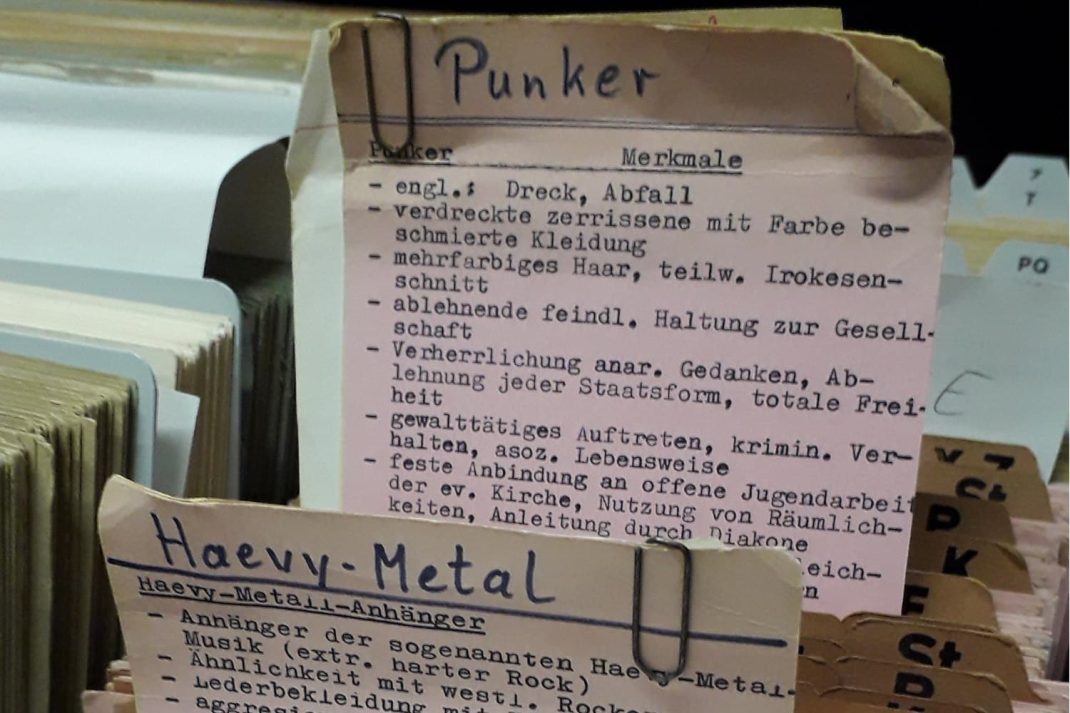 Punker
Punker Merkmale
- engl.: Dreck, Abfall
- verdreckte zerrissene mit Farbe be-
schmierte Kleidung
- mehrfarbiges Haar, teilw. Irokesen-
schnitt
- ablehnende feindl. Haltung zur Gesell-
schaft
- Verherrlichung anar. Gedanken, Ab-
lehnung jeder Staatsform, totale Frei-
heit
- gewalttätiges Auftreten, krimin. Ver-
halten, asoz. Lebensweise
- feste Anbindung an offene Jugendarbeit
der ev. Kirche, Nutzung von Räumlich-
keiten, Anleitung durch Diakone
eich-
n
Haevy-Metal
Haevy-Metall-Anhänger
- Anhänger der sogenannten Haevy-Metal-
Musik (extr. harter Rock)
- Ähnlichkeit mit westl.
- Lederbekleidung mit
T
PQ
E
St
P
K
F
St